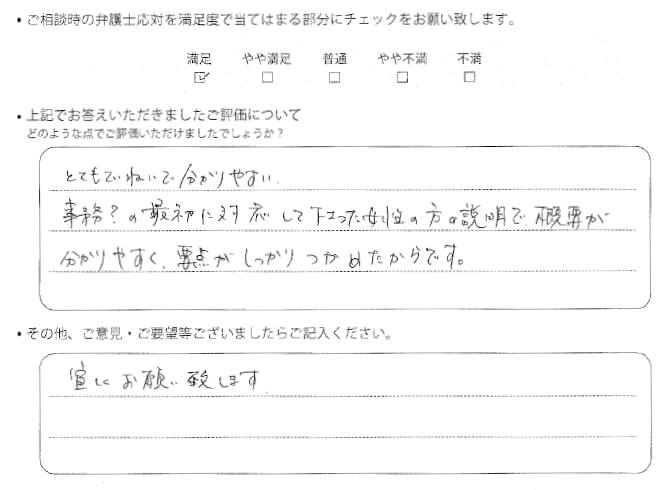 ・ご相談時の弁護士応対を満足度で当てはまる部分にチェックをお願い致します。
満足 やや満足 普通 やや不満 不満
☑ □ □ □ □
・上記でお答えいただきましたご評価について
どのような点でご評価いただけましたでしょうか？
とてもていねいで分かりやすい.
事務？の最初に対応して下さった女性の方の説明で、概要が
分かりやすく、要点がしっかりつかめたからです。
・その他、ご意見・ご要望等ございましたらご記入ください。
宜しくお願い致します